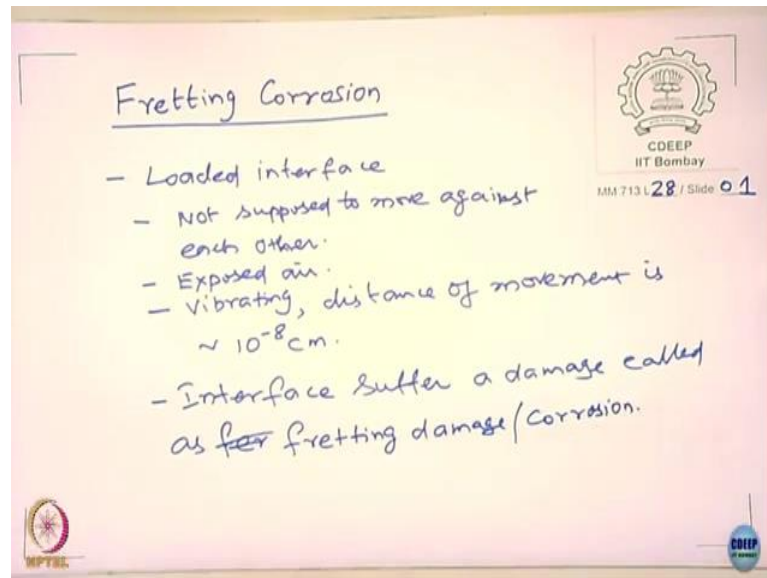 Fretting Corrosion
CDEEP
IIT Bombay
MM 713 L 28 / Slide 01
- Loaded interface
- Not supposed to move against
each other.
- Exposed air.
- Vibrating, distance of movement is
~ 10⁻⁸ cm.
- Interface suffer a damage called
as fretting damage/corrosion.
NPTEL
CDEEP
IIT BOMBAY